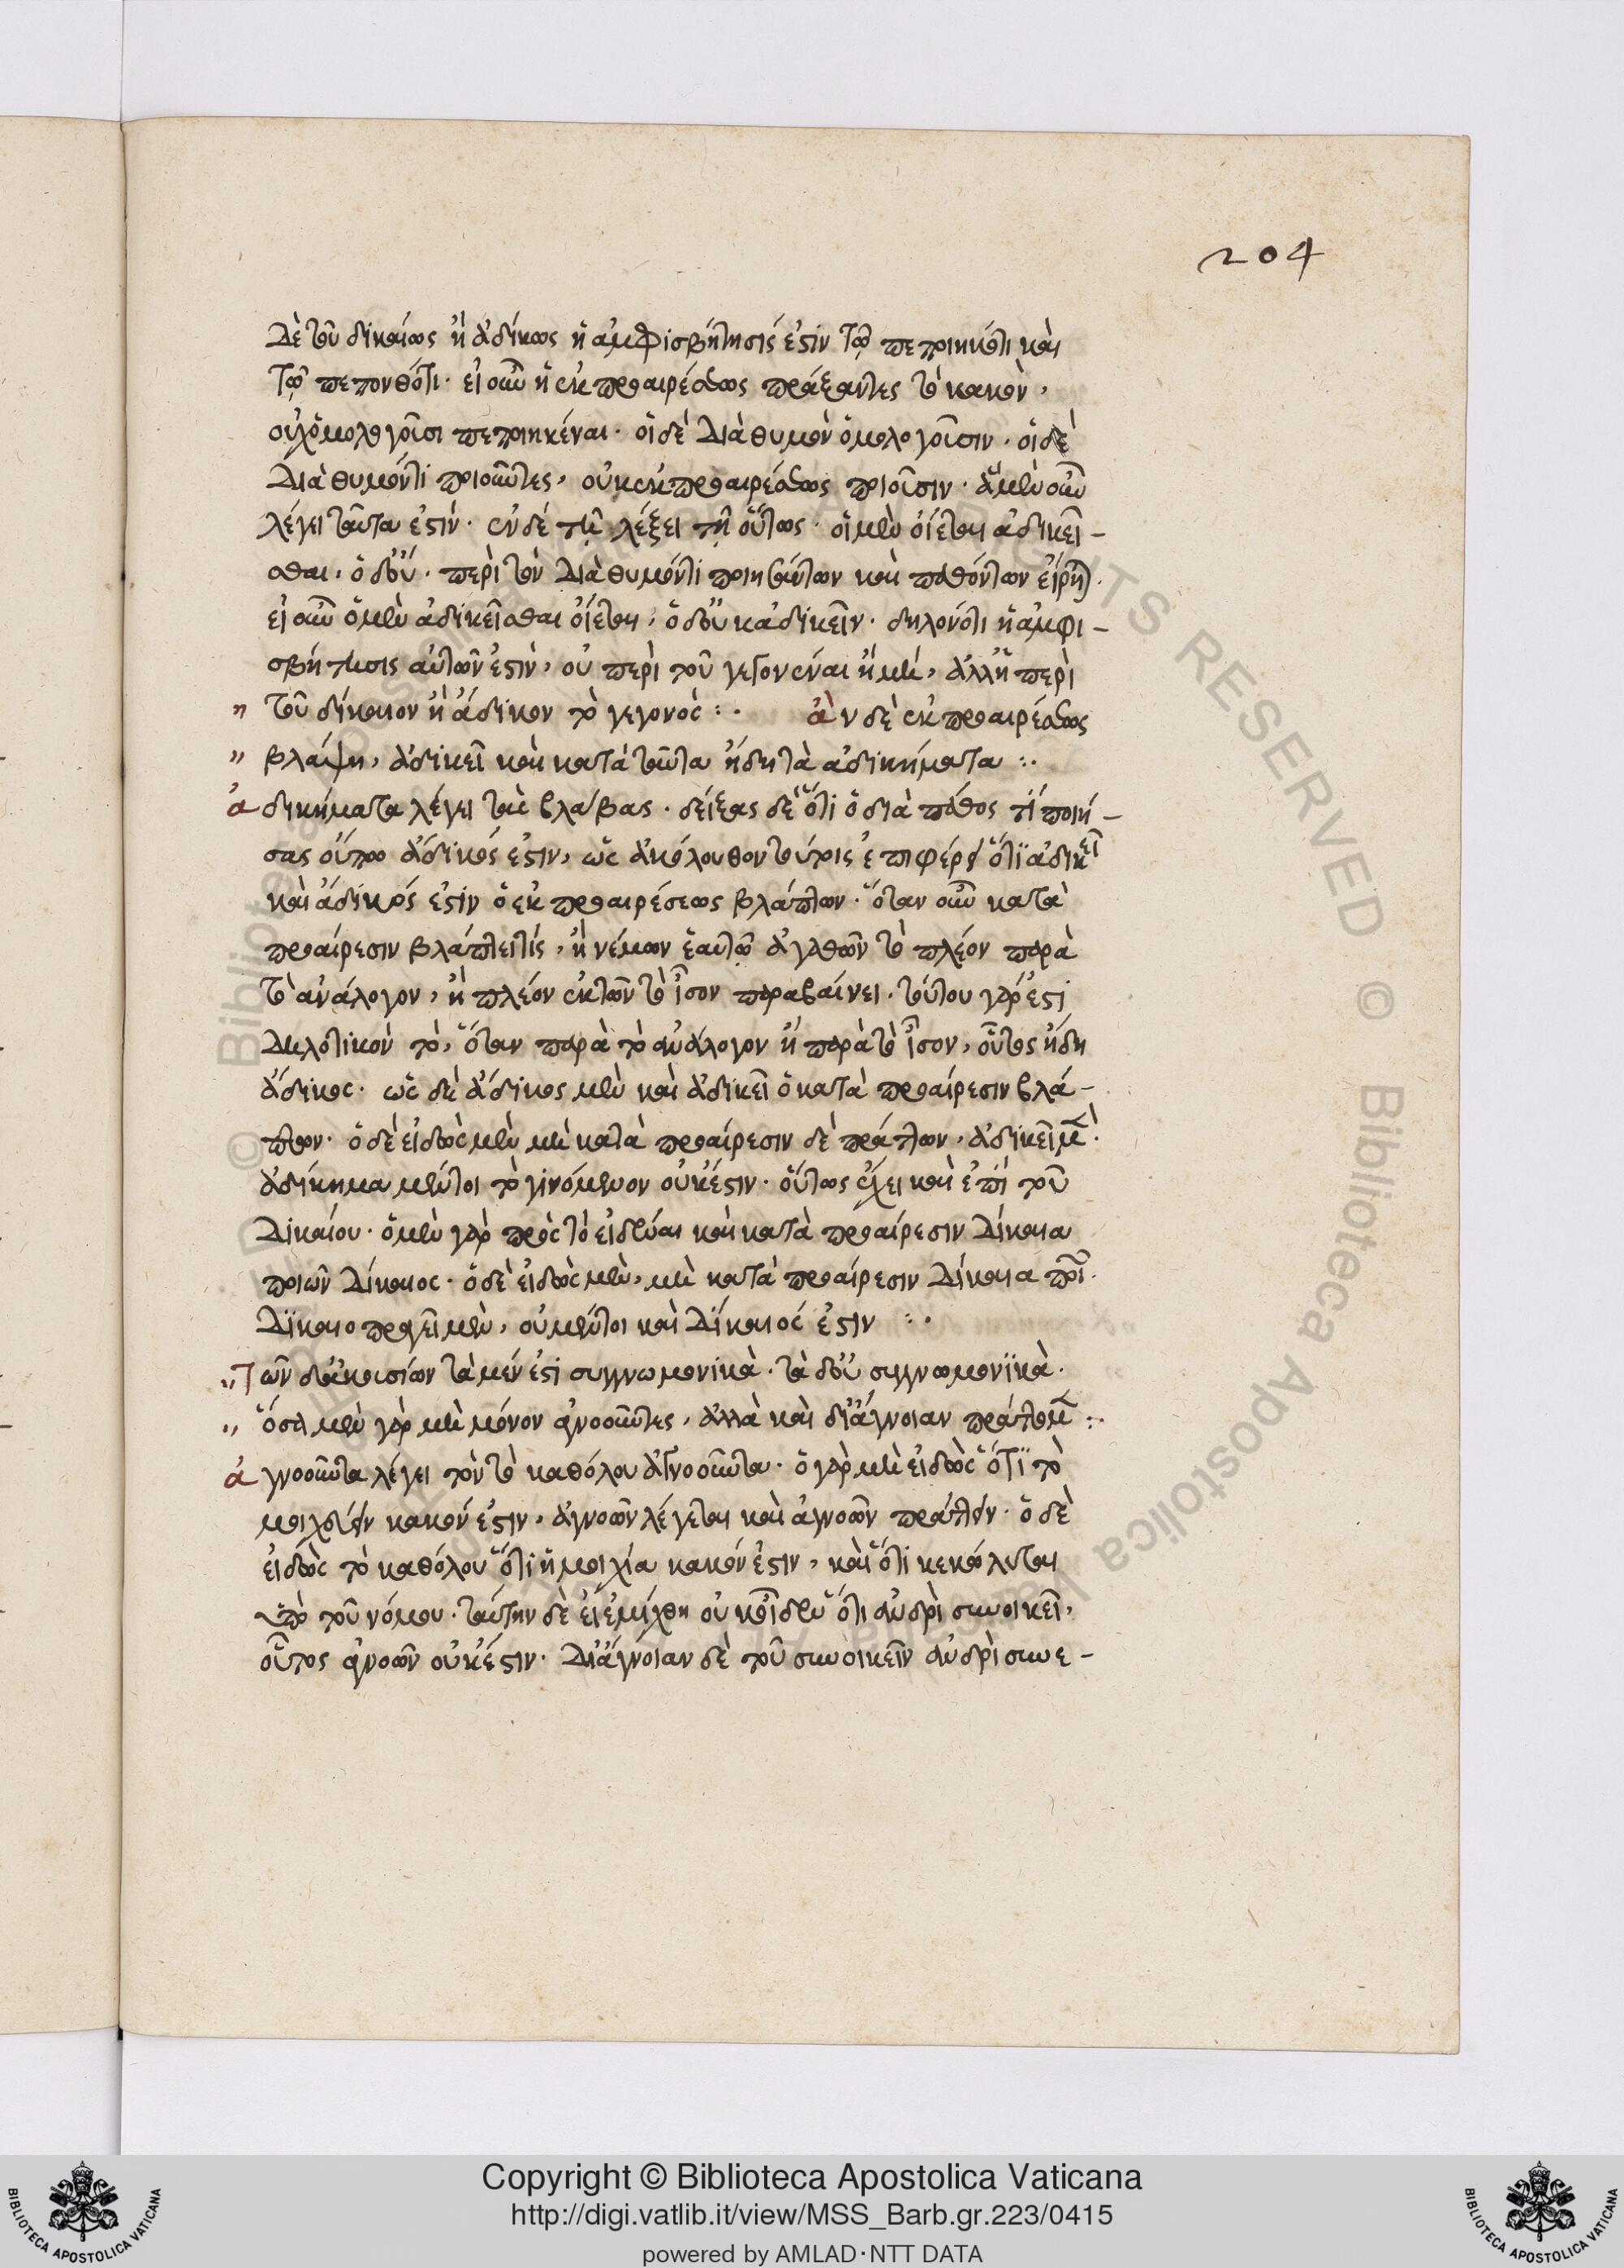 204
δὲ τοῦ δικαίως ἢ ἀδίκως ἡ ἀμφισβήτησίς ἐστιν τῷ πεποιηκότι καὶ
τῷ πεπονθότι. εἰ οὖν ἢ ἐκ προαιρέσεως πράξαντες τὸ κακὸν,
οὐχ ὁμολογοῦσι πεποιηκέναι. οἱ δὲ διὰ θυμὸν ὁμολογοῦσιν. οἱ δὲ
διὰ θυμόν τι ποιοῦντες, οὐκ ἐκ προαιρέσεως ποιοῦσιν. ἃ μὲν οὖν
λέγει ταῦτα ἐστίν. ἐν δέ τῇ λέξει τῇ οὕτως. ὁ μὲν οἴεται ἀδικεῖ-
σθαι. ὁ δ' οὔ. περὶ τῶν διὰ θυμόν τι ποιησάντων καὶ παθόντων εἴρηται.
εἰ οὖν ὁ μὲν ἀδικεῖσθαι οἴεται, ὁ δ' οὔκ ἀδικεῖν. δηλονότι ἡ ἀμφι-
σβήτησις αὐτῶν ἐστὶν, οὐ περὶ τοῦ γεγονέναι ἢ μή, ἀλλ' ἢ περὶ
τοῦ δίκαιον ἢ ἄδικον τὸ γεγονός :. ἂν δὲ ἐκ προαιρέσεως
βλάψῃ, ἀδικεῖ καὶ κατὰ ταῦτα ἤδη τὰ ἀδικήματα :.
ἀδικήματα λέγει τὰς βλάβας. δείξας δὲ ὅτι ὁ διὰ πάθος τί ποιή-
σας οὔπω ἄδικός ἐστιν, ὡς ἀκόλουθον τούτοις ἐπιφέρει ὅτι ἀδικεῖ
καὶ ἄδικός ἐστιν ὁ ἐκ προαιρέσεως βλάπτων. ὅταν οὖν κατὰ
προαίρεσιν βλάπτει τίς, ἢ νέμων ἑαυτῷ ἀγαθῶν τὸ πλέον παρὰ
τὸ ἀνάλογον, ἢ πλέον ἐκ τῶν τὸ ἶσον παραβαίνει. τούτου γάρ ἐστι
δηλοτικόν τὸ, ὅταν παρὰ τὸ ἀνάλογον ἢ παρὰ τὸ ἶσον, οὗτος ἤδη
ἄδικος. ὡς δὴ ἄδικος μὲν καὶ ἀδικεῖ ὁ κατὰ προαίρεσιν βλά-
πτων. ὁ δὲ εἰδὼς μὲν μὴ κατὰ προαίρεσιν δὲ πράττων, ἀδικεῖ μὲν.
ἀδίκημα μέντοι τὸ γινόμενον οὐκ ἔστιν. οὕτως ἔχει καὶ ἐπὶ τοῦ
δικαίου. ὁ μὲν γὰρ πρὸς τὸ εἰδέναι καὶ κατὰ προαίρεσιν δίκαια
ποιῶν δίκαιος. ὁ δὲ εἰδὼς μὲν, μὴ κατὰ προαίρεσιν δίκαια ποιῶν.
δικαιοπραγεῖ μὲν, οὐ μέντοι καὶ δίκαιός ἐστιν :.
Τῶν δ' ἀκουσίων τὰ μέν ἐστι συγγνωμονικὰ. τὰ δ' οὐ συγγνωμονικὰ.
ὅσα μὲν γὰρ μὴ μόνον ἀγνοοῦντες, ἀλλὰ καὶ δι' ἄγνοιαν πράττομεν :.
ἀγνοοῦντα λέγει τὸν τὸ καθόλου ἀγνοοῦντα. ὁ γὰρ μὴ εἰδὼς ὅτι τὸ
μοιχεύειν κακόν ἐστιν, ἀγνοῶν λέγεται καὶ ἀγνοῶν πράττειν. ὁ δὲ
εἰδὼς τὸ καθόλου ὅτι ἡ μοιχία κακόν ἐστιν, καὶ ὅτι κεκώλυται
ὑπὸ τοῦ νόμου. ταύτην δὲ εἰ ἐμίχθη οὐκ οἶδεν ὅτι ἀνδρὶ συνοικεῖ,
οὗτος ἀγνοῶν οὐκ ἔστιν. δι' ἄγνοιαν δὲ τοῦ συνοικεῖν ἀνδρὶ συνε-
Copyright © Biblioteca Apostolica Vaticana
http://digi.vatlib.it/view/MSS_Barb.gr.223/0415
powered by AMLAD·NTT DATA